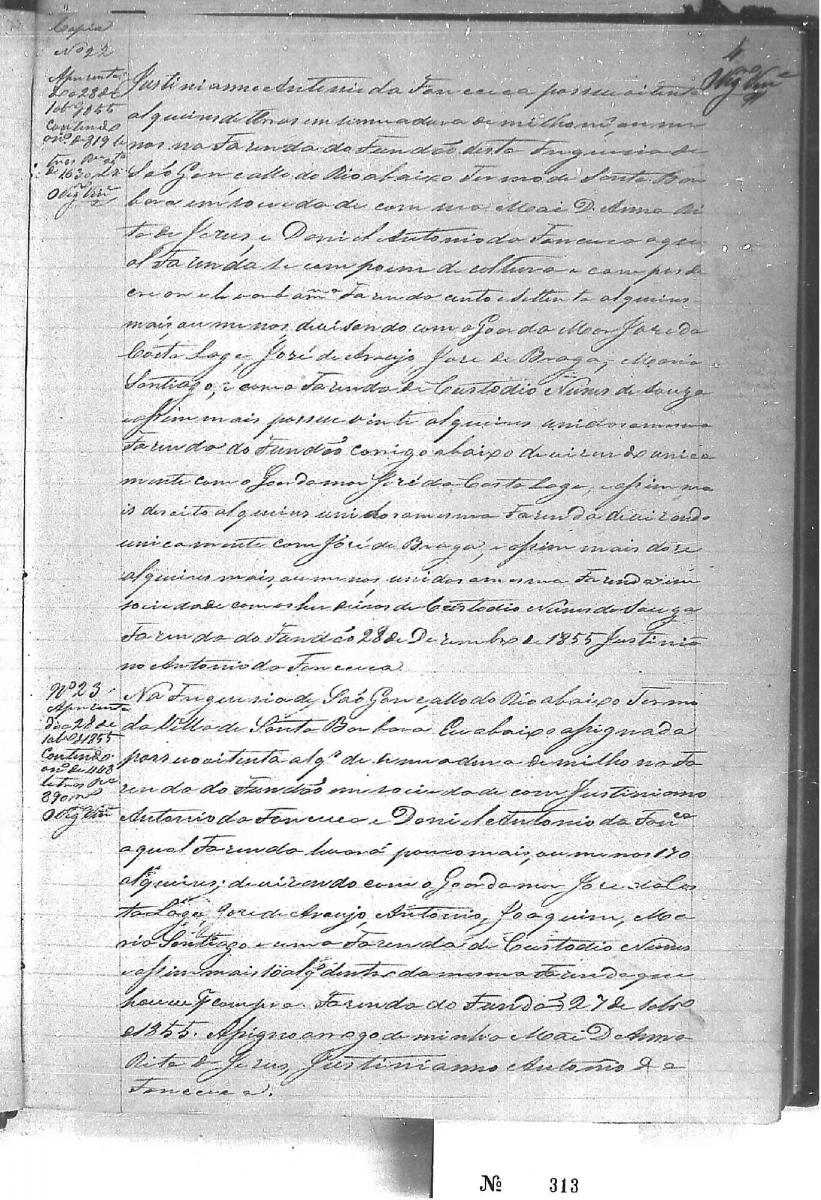 4
Copia
Nº 22
Apresenta
do a 28 de
Xbrº 1855
Contendo
o nº de 819 le
tras
de 1630 rs
O Vigº
Justinianno Antonio da Fonceca possue oitenta
alqueires de terras em semeadura de milho mais, ou me
nos na Fazenda do Fundão desta Freguesia de
São Gonçallo do Rio abaixo Termo de Santa Bar
bara em sociedade com sua Mai D. Anna Ri
ta de Jezus e Daniel Antonio da Fonceca a qu
al Fazenda se compoem de cultura e campos de
crear e levará a mª Fazenda cento e settenta alqueires
mais ou menos devisando com o Goarda Mor Jose da
Costa Lage, José de Araujo, Jose de Braga, Maria
Santiago, e com a Fazenda de Custodio Nunes de Souza
e assim mais possue vinte alqueires unidos a mesma
Fazenda do Fundão corrigo abaixo devizendo unica
mente com o Goarda mor José da Costa Lage, e assim ma
is desoito alqueires unidos a mesma Fazenda devizando
unicamente com José de Braga, e assim mais doze
alqueires mais, ou menos unidos a mesma Fazenda em
sociedade com os herdeiros de Custodio Nunes de Souza
Fazenda do Fundão 28 de Dezembro de 1855 Justinia
no Antonio da Fonceca
Nº 23
Apresenta
do a 28 de
Xbrº 1855
Contendo
o nº de 448
letras
890 rs
O Vigº
Na Freguesia de São Gonçallo do Rio abaixo Termo
da Villa de Santa Barbara Eu abaixo assignada
possuo oitenta alqs de semeadura de milho na Fa
zenda do Fundão em sociedade com Justiniano
Antonio da Fonceca e Daniel Antonio da Foncª
a qual Fazenda levará pouco mais, ou menos 170
alqueires; devizando com o Goarda mor Jose da Cos
ta Lage, Jose de Araujo, Antonio, Joaquim, Ma
ria Santiago e com a Fazenda de Custodio Nunes
e assim mais 10 alqs dentro da mesma Fazenda que
houve por compra. Fazenda do Fundão 27 de Xbrº
de 1855. Assigno a rogo de minha Mai D. Anna
Rita de Jezus, Justinianno Antonio da
Fonceca.
Nº 313